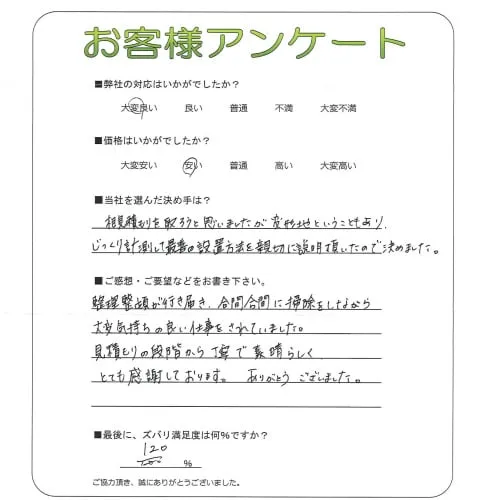 お客様アンケート
■弊社の対応はいかがでしたか?
大変良い 良い 普通 不満 大変不満
■価格はいかがでしたか?
大変安い 安い 普通 高い 大変高い
■当社を選んだ決め手は?
相見積りを取ろうと思いましたが変形地ということもあり、
じっくり計測して最善の設置方法を親切に説明頂いたので決めました。
■ご感想・ご要望などをお書き下さい。
整理整頓が行き届き、合間合間に掃除をしながら
大変気持ちの良い仕事をされていました。
見積もりの段階から丁寧で素晴らしく
とても感謝しております。ありがとうございました。
■最後に、ズバリ満足度は何%ですか?
120
100 %
ご協力頂き、誠にありがとうございました。